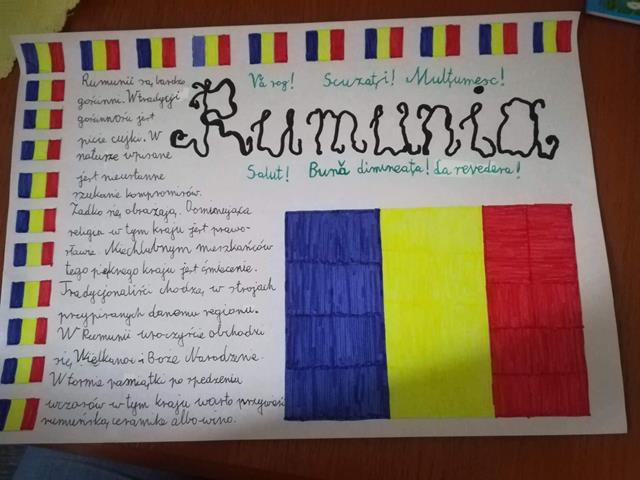 Vă rog! Scuzați! Mulțumesc!
Rumunia
Salut! Bună dimineața! La revedere!
Rumunii są bardzo
gościnni. W tradycji
gościnności jest
picie cujki. W
naturze wpisane
jest nieustanne
szukanie kompromisów.
Żadko się obrażają. Dominująca
religia w tym kraju jest prawo-
sławie. Niechlubnym mieszkańców
tego pięknego kraju jest śmiecenie.
Tradycjonaliści chodzą w strojach
przypisanych danemu regionu.
W Rumunii uroczyście obchodzi
się Wielkanoc i Boże Narodzenie.
W forma pamiątki po spędzeniu
wczasów w tym kraju warto przywieść
rumuńską ceramikę albo wino.